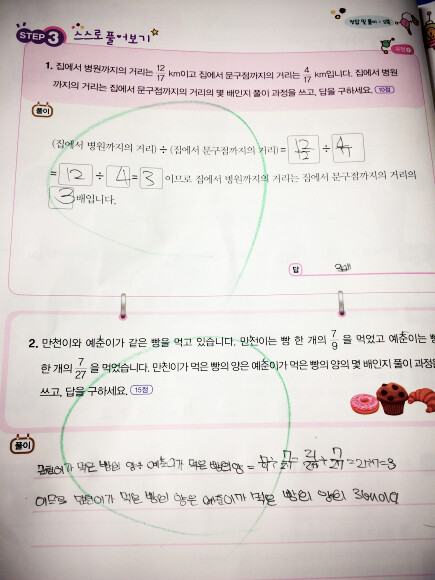 정답 및 풀이
STEP 3 스스로 풀어보기
1. 집에서 병원까지의 거리는 12/17 km이고 집에서 문구점까지의 거리는 4/17 km입니다. 집에서 병원
까지의 거리는 집에서 문구점까지의 거리의 몇 배인지 풀이 과정을 쓰고, 답을 구하세요. 10점
풀이
(집에서 병원까지의 거리) ÷ (집에서 문구점까지의 거리) = 12/17 ÷ 4/17
= 12 ÷ 4 = 3 이므로 집에서 병원까지의 거리는 집에서 문구점까지의 거리의
3 배입니다.
답 3배
2. 만천이와 예춘이가 같은 빵을 먹고 있습니다. 만천이는 빵 한 개의 7/9 을 먹었고 예춘이는
한 개의 7/27 을 먹었습니다. 만천이가 먹은 빵의 양은 예춘이가 먹은 빵의 양의 몇 배인지 풀이 과정을
쓰고, 답을 구하세요. 15점
풀이
먹은 빵의 양 예춘이가 먹은 빵의양 = ÷ 7/27 = ÷ 7/27 = 21÷7=3
이므로 만천이가 먹은 빵의 양은 예춘이가 먹은 빵의 양의